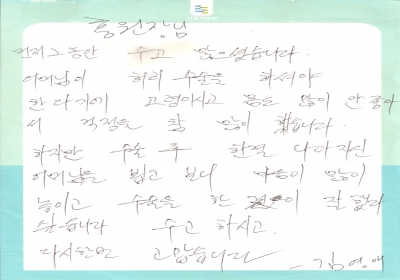 홍원장님
먼저 그동안 수고 많으셨습니다.
어머님이 허리 수술을 하셔야
한다기에 고령이시고 몸은 많이 안 좋아
서 걱정을 참 많이 했습니다.
하지만 수술 후 한결 나아지신
어머님을 뵙고 보니 마음이 많이
놓이고 수술을 한 것이 잘 했다
싶습니다 수고 하시고.
다시한번 고맙습니다
- 김영애